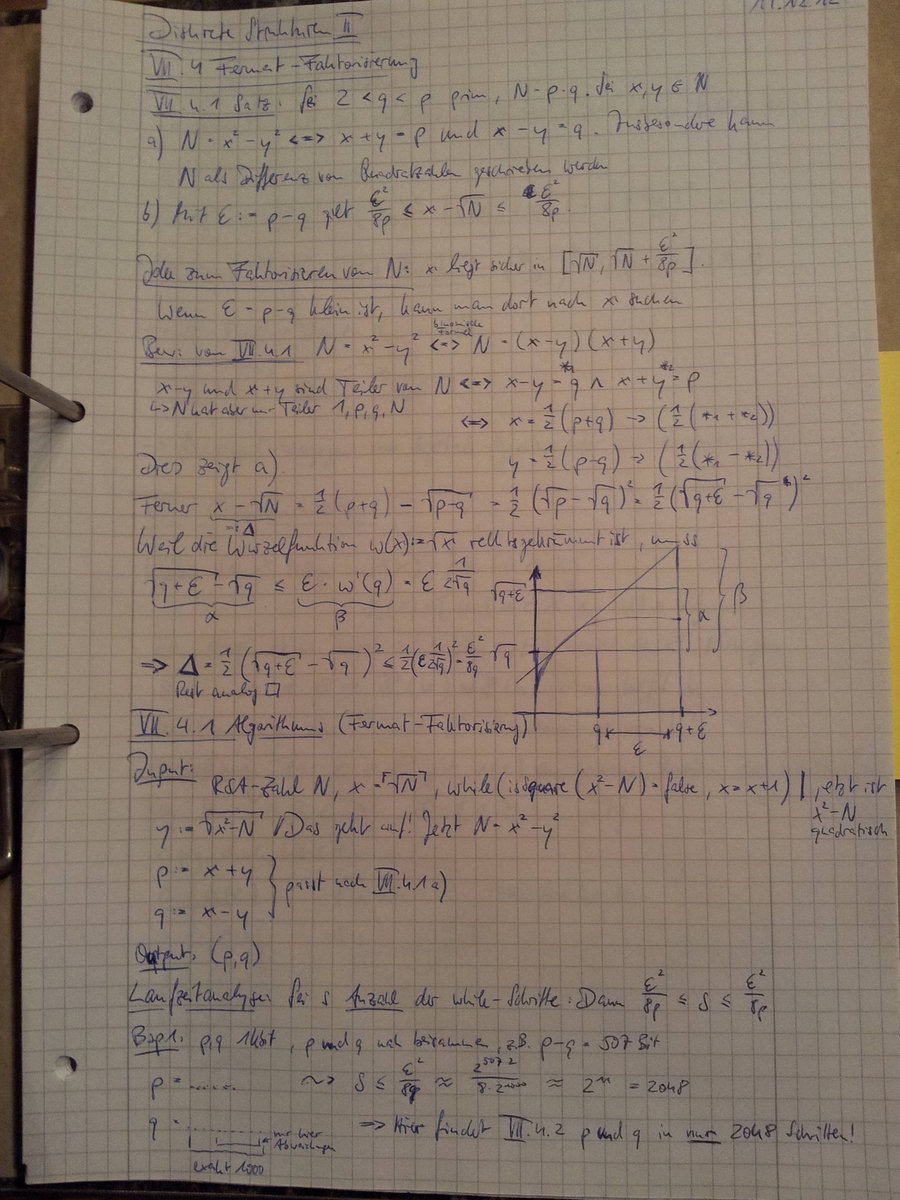 11.12.12
Diskrete Strukturen II
VII.4 Fermat-Faktorisierung
VII.4.1 Satz: Sei 2 < q < p prim, N = p·q. Sei x,y ∈ N
a) N = x² - y² <=> x + y = p und x - y = q. Insbesondere kann
N als Differenz von Quadratzahlen geschrieben werden
b) Mit ε := p-q gilt ε²/8p ≤ x - √N ≤ ε²/8p.
Idee zum Faktorisieren von N: x liegt sicher in [√N, √N + ε²/8p].
Wenn ε = p-q klein ist, kann man dort nach x suchen
Bew: von VII.4.1 N = x² - y² <=> N = (x-y)(x+y)
binomische Formel
x-y und x+y sind Teiler von N <=> x-y =*1 q ∧ x+y =*2 p
↳ N hat aber nur Teiler 1, p, q, N
<=> x = 1/2 (p+q) → (1/2 (*1 + *2))
y = 1/2 (p-q) → (1/2 (*1 - *2))
Dies zeigt a).
Ferner x - √N = 1/2 (p+q) - √p·q = 1/2 (√p - √q)² = 1/2 (√q+ε - √q)²
=: Δ
Weil die Wurzelfunktion w(x) := √x rechtsgekrümmt ist, muss
√q+ε - √q ≤ ε · w'(q) = ε 1/2√q
α β
√q+ε α β
=> Δ = 1/2 (√q+ε - √q)² ≤ 1/2 (ε 1/2√q)² = ε²/8q √q
Rest analog □
q ε q+ε
VII.4.1 Algorithmus (Fermat-Faktorisierung)
Input:
RSA-Zahl N, x = ⌈√N⌉, while (issquare (x²-N) = false, x = x+1) | jetzt ist
x²-N
quadratisch
y := √x²-N // Das geht auf! Jetzt N = x² - y²
p := x+y
passt nach VII.4.1 a)
q := x-y
Output: (p,q)
Laufzeitanalyse: Sei s Anzahl der while-Schritte. Dann ε²/8p ≤ s ≤ ε²/8p
Bsp1. p,q 1kbit, p und q nah beisammen, z.B. p-q = 507 Bit
p = ...... ~> s ≤ ε²/8q ≈ 2^507·2/8·2^1000 ≈ 2^11 = 2048
q = ...... nur hier Abweichungen => Hier findet VII.4.2 p und q in nur 2048 Schritten!
exakt 1000